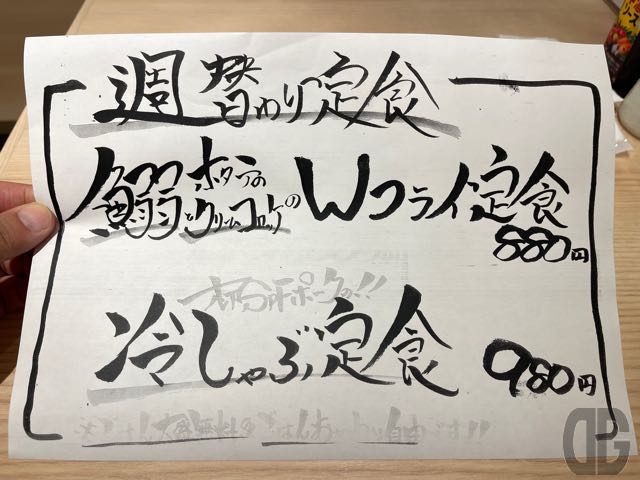 週替わり定食
鰯とホタテのクリームコロッケのWフライ定食
880円
ポークの!!
冷しゃぶ定食
980円
※ごはん大盛無料&ごはんおかわり自由です!!
DG